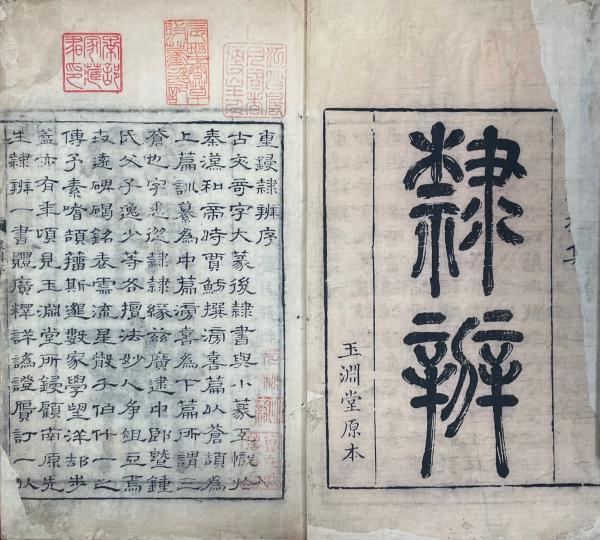 隸辨
玉淵堂原本
重鋟隸辨序
古文奇字大篆後隸書與小篆互幟於
秦漢和帝時賈魴撰滂喜篇以蒼頡為
上篇訓纂為中篇滂喜為下篇所謂三
蒼也字悉從隸隸緣茲廣逮中郎暨鍾
氏父子逸少等各擅法妙人爭俎豆焉
碑碣銘表流星散伯什一之
傳予素嗜頡籀斯邈數家學望洋卻步
蓋亦有年頃見玉淵堂所鋟顧南原先
生隸辨一書體廣釋詳譌證贗訂一以